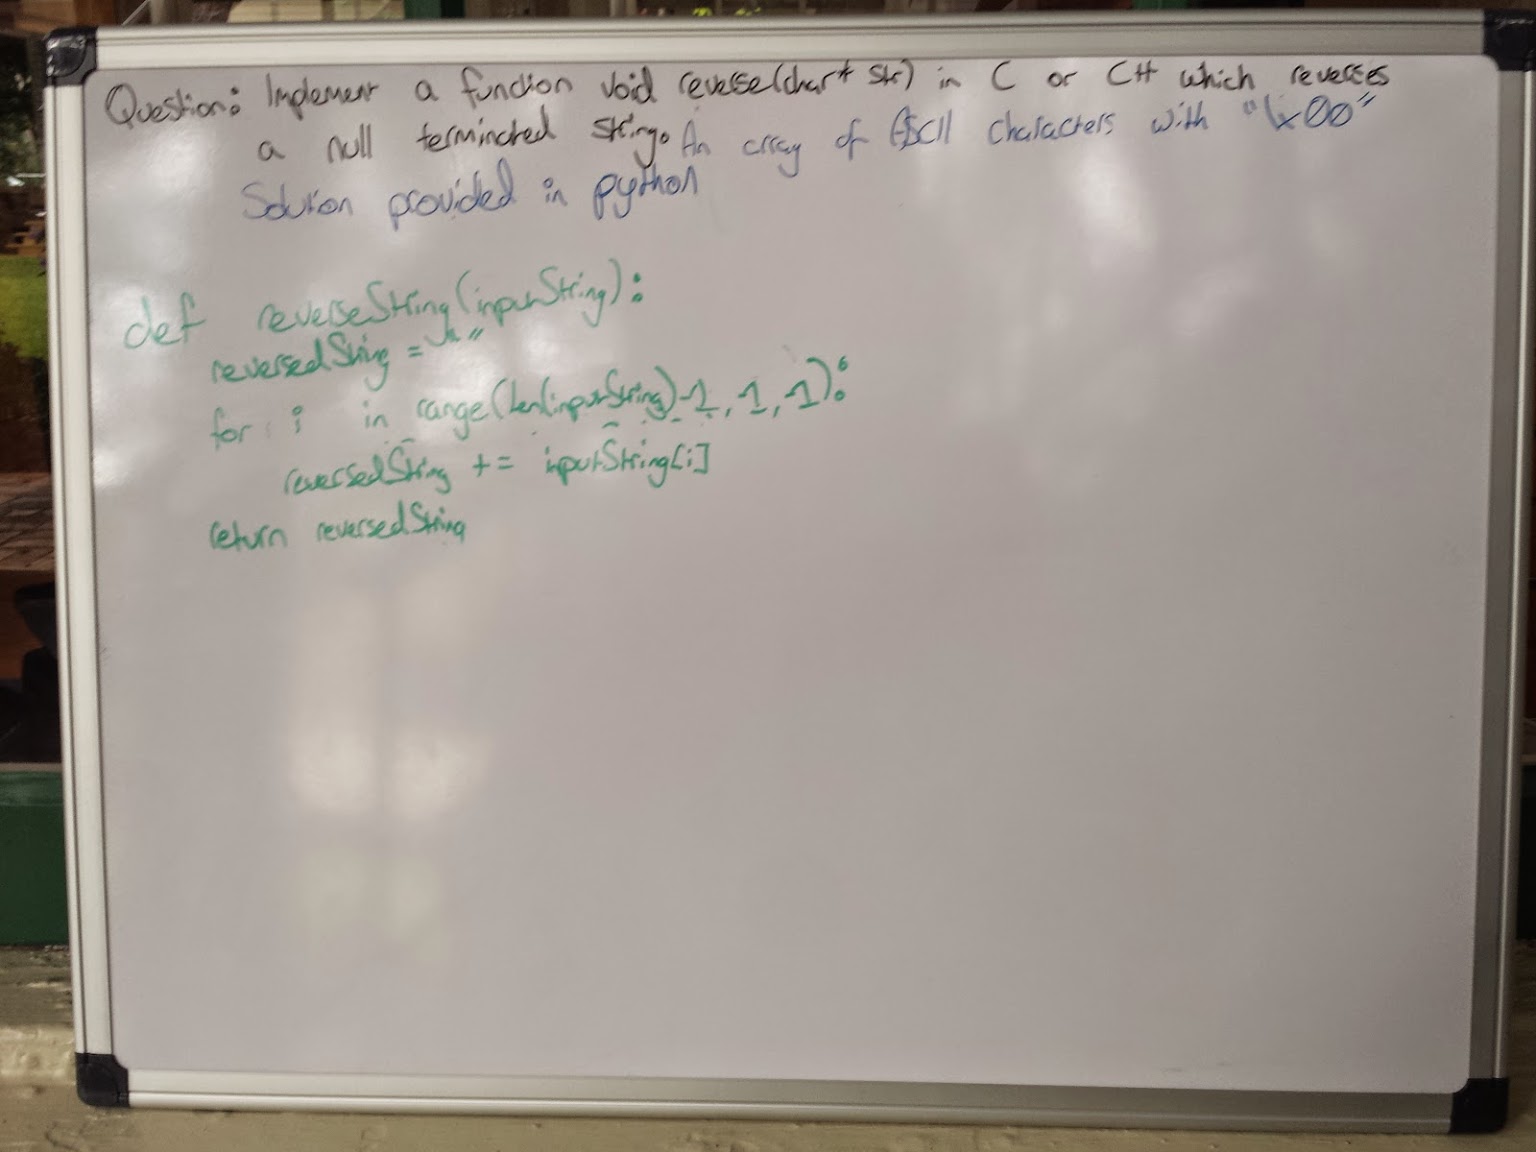 Question: Implement a function void reverse(char* str) in C or C++ which reverses
a null terminated string. An array of ASCII characters with "\x00"
Solution provided in python
def reverseString(inputString):
reversedString = ""
for i in range(len(inputString)-1,-1,-1):
reversedString += inputString[i]
return reversedString